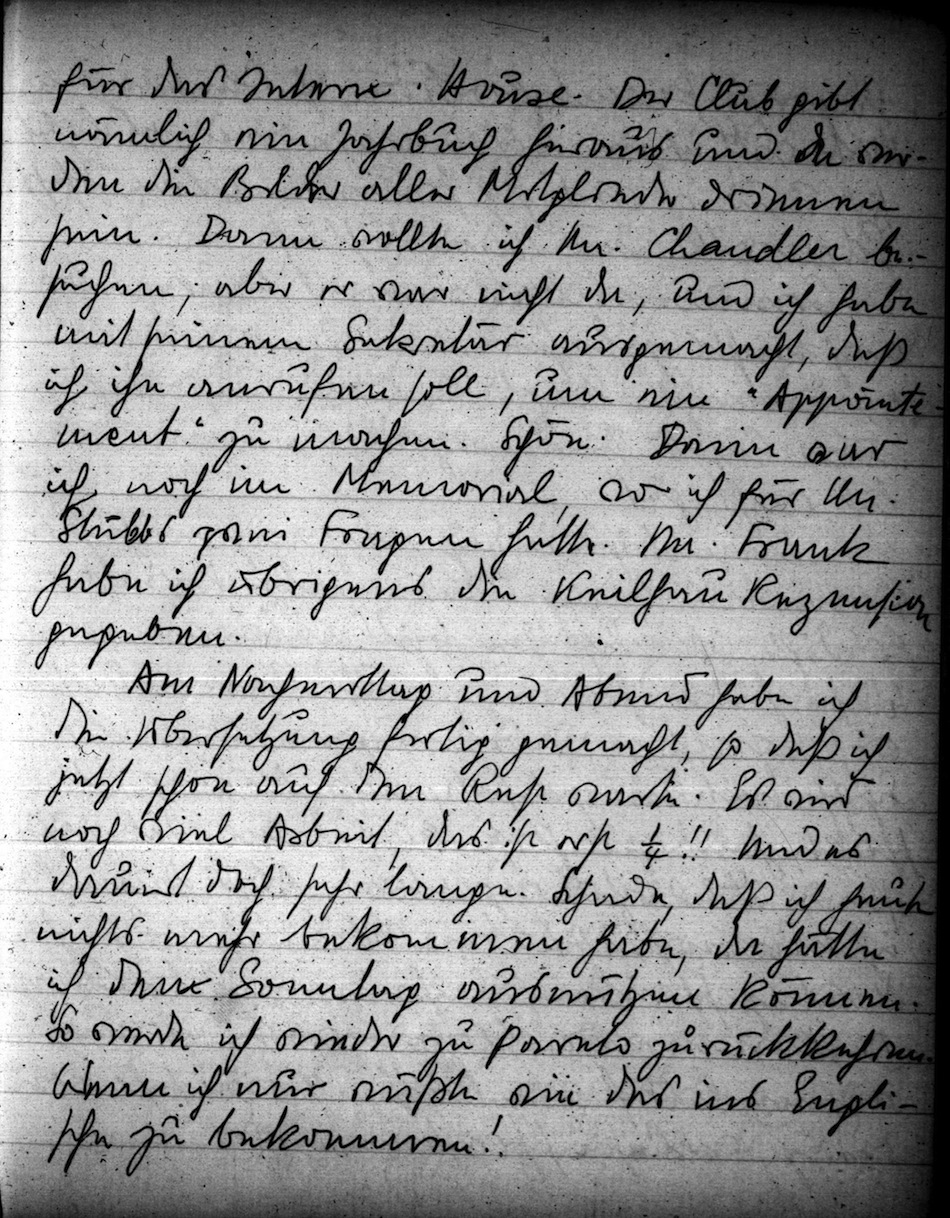 für das Intern. House. Der Club gibt
nämlich ein Jahrbuch heraus und da wer-
den die Bilder aller Mitglieder drinnen
sein. Dann wollte ich Mr. Chandler be-
suchen, aber er war nicht da, und ich habe
mit seinem Sekretär ausgemacht, daß
ich ihn anrufen soll, um ein "Appointe-
ment" zu machen. Schön. Dann war
ich noch im Memorial, wo ich für Mr.
Stubbs zwei Fragen hatte. Mr. Frank
habe ich übrigens die Keilhau Rezension
gegeben.
Am Nachmittag und Abend habe ich
die Übersetzung fertig gemacht, so daß ich
jetzt schon auf den Rest warte. Es wird
noch viel Arbeit, das ist erst ¼!! Und es
dauert doch sehr lange. Schade, daß ich heute
nichts mehr bekommen habe, da hätte
ich den Sonntag ausnützen können.
So werde ich wieder zu Pareto zurückkehren.
Wenn ich nur wüßte wie das ins Engli-
sche zu bekommen!